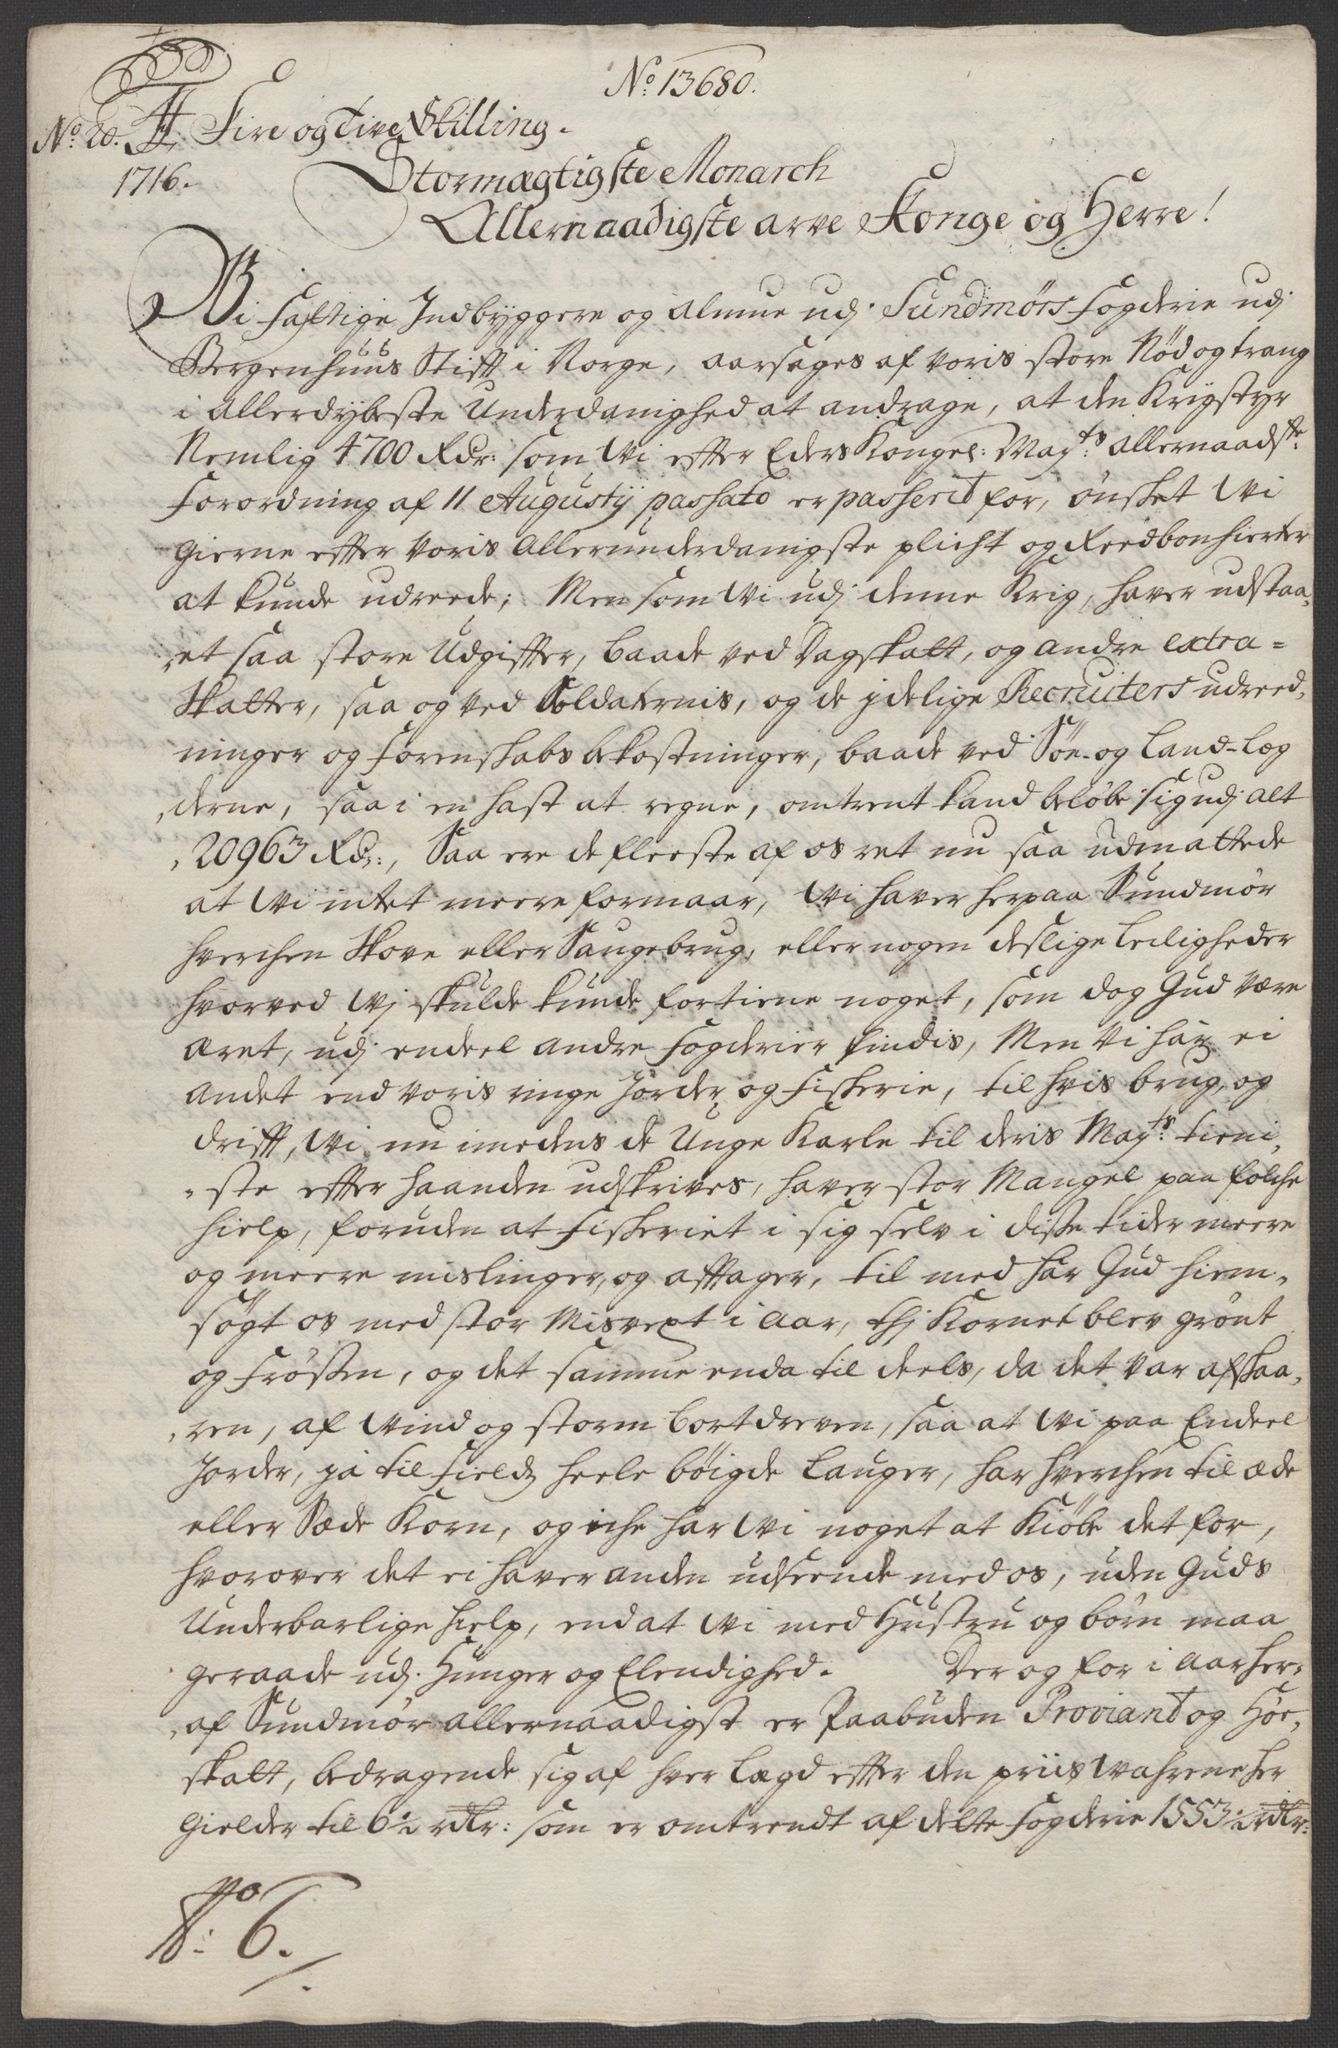 No: 13680.
No: 20. Fire og Tive Skilling.
1716.
Stormægtigste Monarch
Allernaadigste arve Konge og Herre!
Wi fattige Indbyggere og almue udj Sundmørs Fogderie udj
Bergenhuus Stift i Norge, aarsages af voris store Nød og trang
i allerdybeste Underdanighed at andrage, at den Krigstyr
Nemlig 4700 Rdr: som Wi effter Eders Kongel: May:ts allernaadste
Forordning af 11 Augustij passato er passerit for, ønsket Wi
gierne effter voris allerunderdanigste plicht og Reedbonhierter
at kunde udreede; Men som Wi udj denne Krig, haver udstaa,
,et saa store Udgiffter, baade ved Dagskatt, og andre extra=
Skatter, saa og ved Soldaternis, og de jdelige Recruiters udreed,
ninger og Forenskabs bekostninger, baade ved Søe- og Land-Leg
,derne, saa i en hast at regne, omtrent kand beløbe sig udj alt
,20963 Rdr:, Saa ere de fleeste af os ret nu saa udmattede
at Wi intet meere formaar, Wi haver her paa Sundmør
hverchen Skove eller Saugebrug, eller nogen deslige Leiligheder
hvorved Wj skulde kunde fortiene noget, som dog Gud være
æret, udj endeel andre Fogderier findis, Men Vi har ei
andet end voris ringe Jorder og Fiskerie, til hvis brug, og
drifft, Wi nu imedens de Unge Karle til deris May:ts tieni,
,ste effter haanden udskrives, haver stor Mangel paa folche
hielp, foruden at Fiskeriet i sig selv i disse tider meere
og meere mislinger, og afftager, til med har Gud hiem,
søgt os med stor Misvext i aar, thj Kornet blev grønt
og Frossen, og det samme enda til deels, da det var afskaa,
,ren, af Wind og storm bortdreven, saa at Wi paa Endeel
Jorder, ja til Fields heele bøigde Lauger, har hverchen til æde
eller Sæde Korn, og iche har Wi noget at Kiøbe det for,
hvorover det ei haver anden udseende med os, uden Guds
Underbarlige hielp, end at Wi med Hustru og børn maa
geraade udj Hunger og Elendighed. Der og for i aar her,
,af Sundmør allernaadigst er Paabuden Proviant og Høe,
skatt, bedragende sig af hver Lægd effter den priis Wahrene her
gielder til 6½ rdlr: som er omtrendt af dette Fogderie 1553½ rdlr:
No: 6.